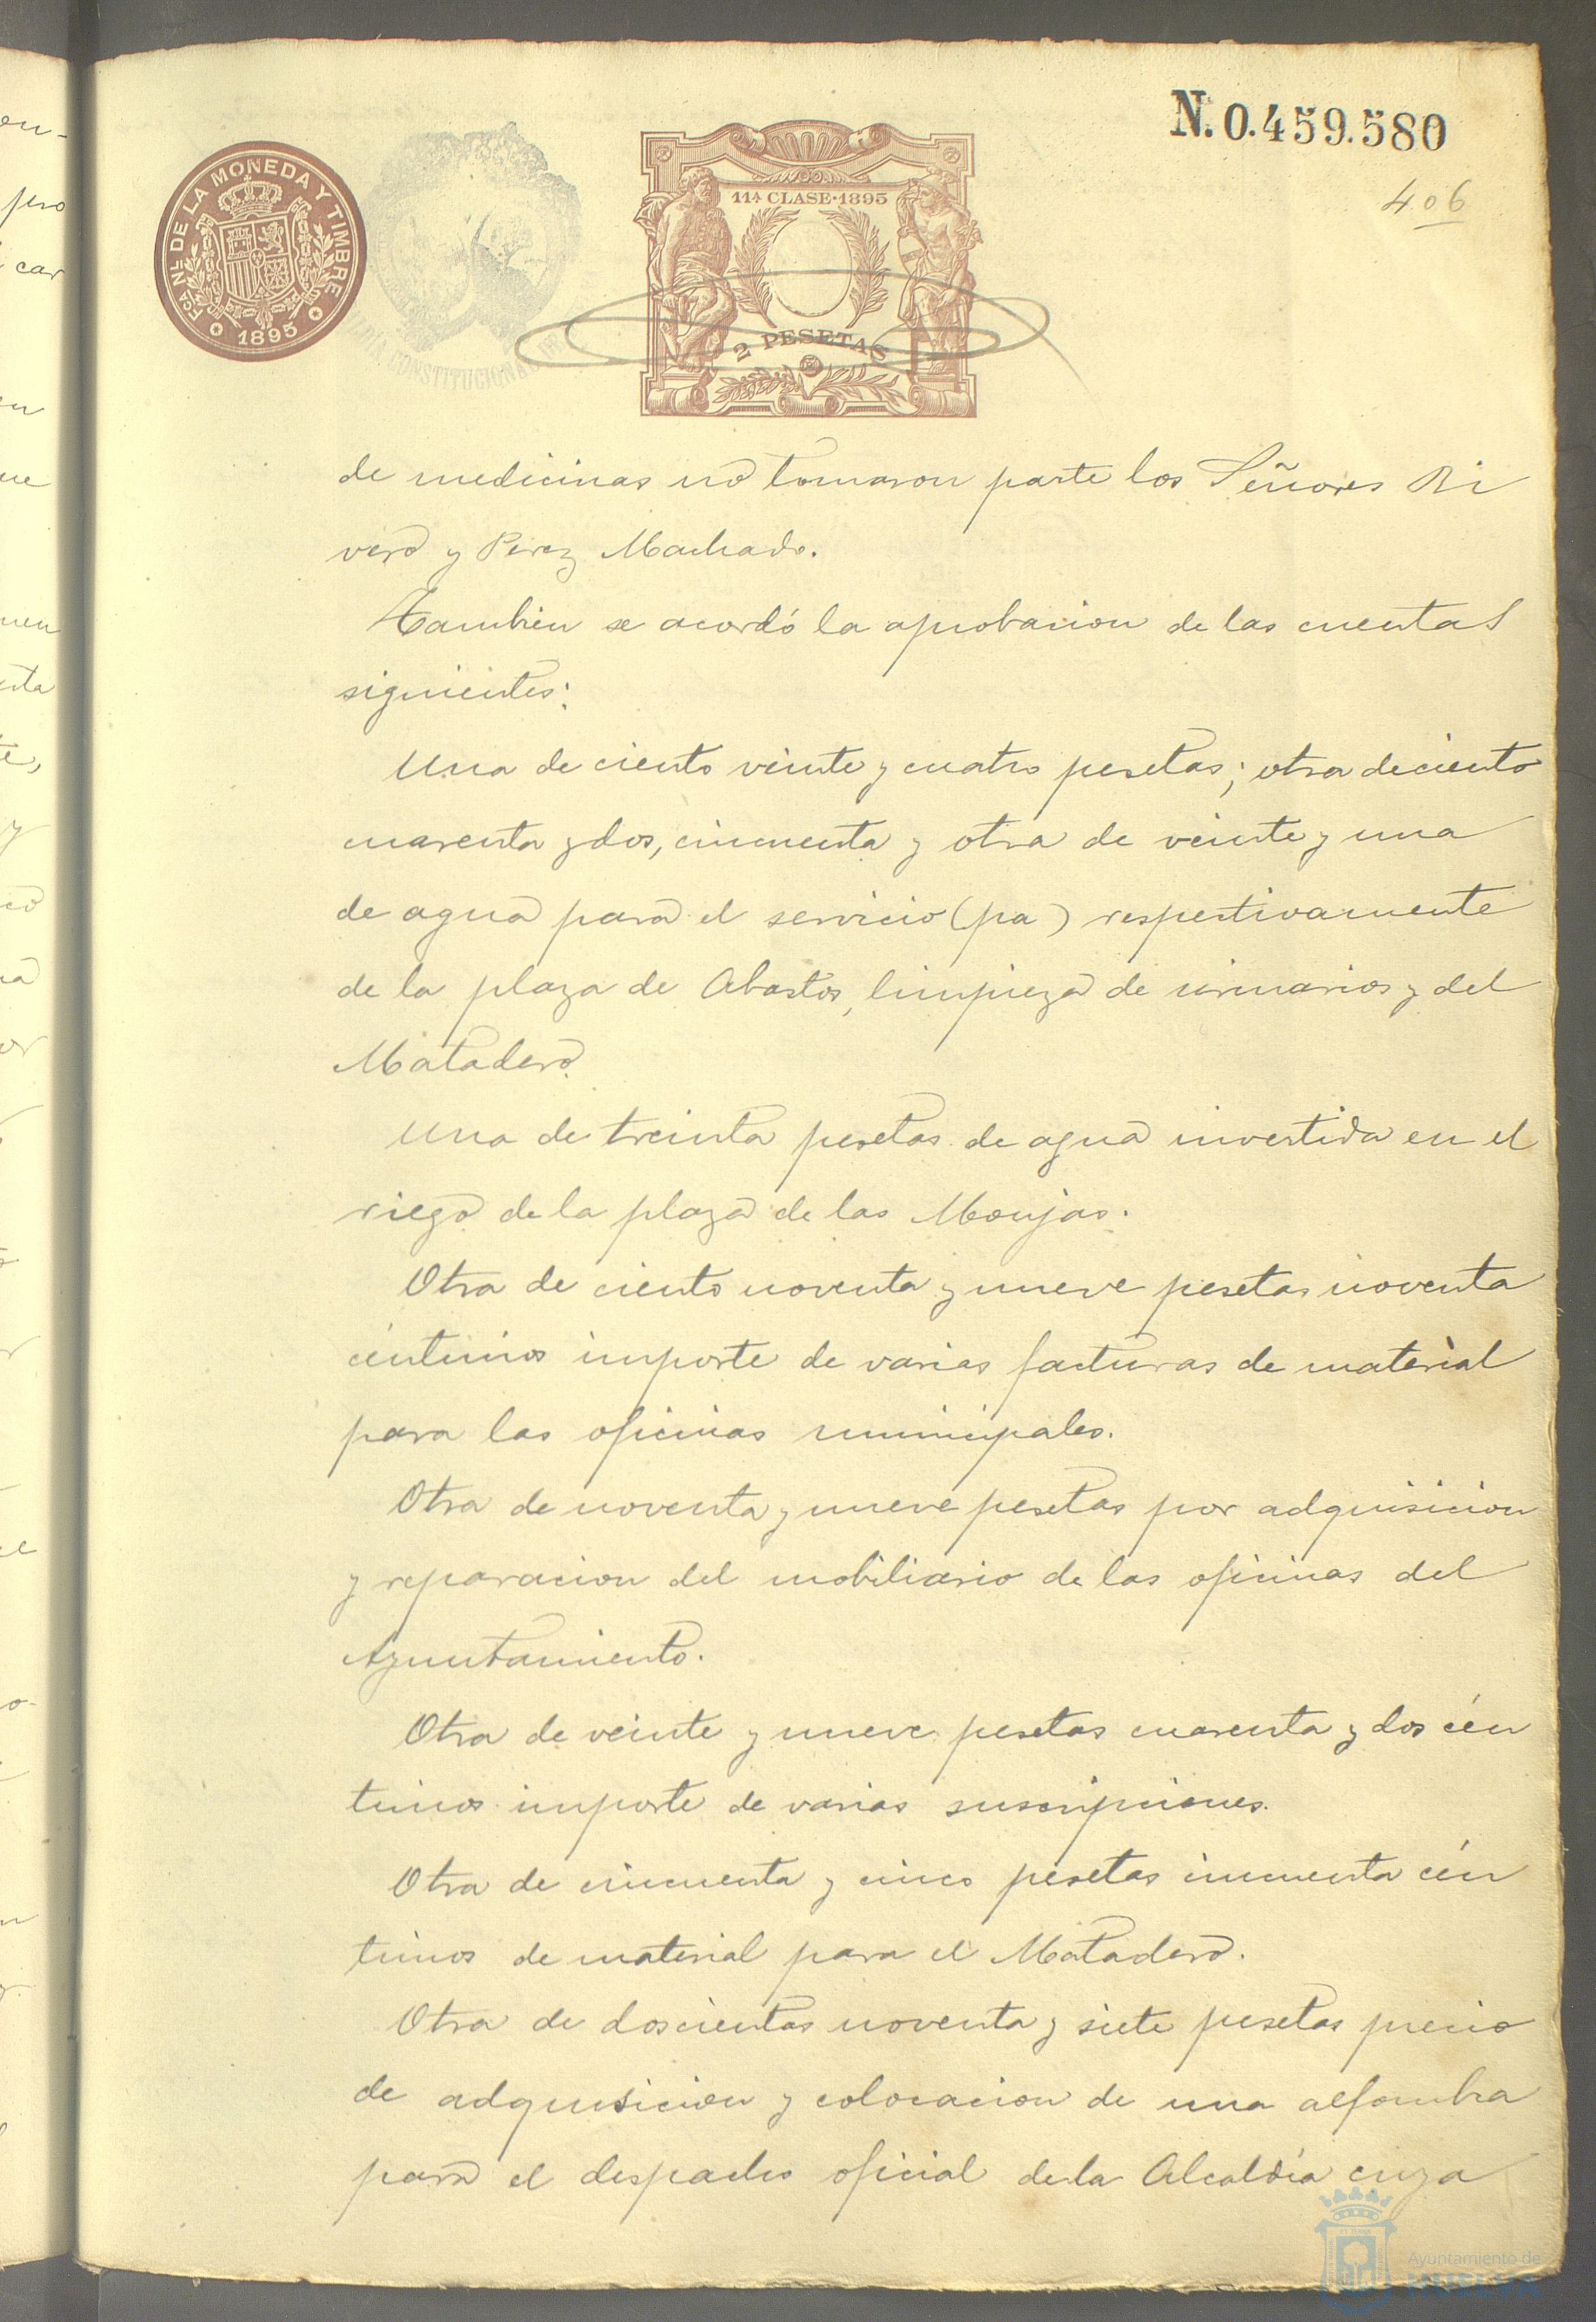 N. 0.459.580
406
FCA NL DE LA MONEDA Y TIMBRE
1895
11ª CLASE·1895
2 PESETAS
CONSTITUCIONAL
de medicinas no tomaron parte los Señores Ri
vero y Perez Machado.
Tambien se acordó la aprobacion de las cuentas
siguientes:
Una de ciento veinte y cuatro pesetas; otra de ciento
cuarenta y dos, cincuenta y otra de veinte y una
de agua para el servicio (pa) respectivamente
de la plaza de Abastos, limpieza de urinarios y del
Matadero.
Una de treinta pesetas de agua invertida en el
riego de la plaza de las Monjas.
Otra de ciento noventa y nueve pesetas noventa
céntimos importe de varias facturas de material
para las oficinas municipales.
Otra de noventa y nueve pesetas por adquisicion
y reparacion del mobiliario de las oficinas del
Ayuntamiento.
Otra de veinte y nueve pesetas cuarenta y dos cén
timos importe de varias suscripciones.
Otra de cincuenta y cinco pesetas cincuenta cén
timos de material para el Matadero.
Otra de doscientas noventa y siete pesetas precio
de adquisicion y colocacion de una alfombra
para el despacho oficial de la Alcaldía cuya
Ayuntamiento de
HUELVA